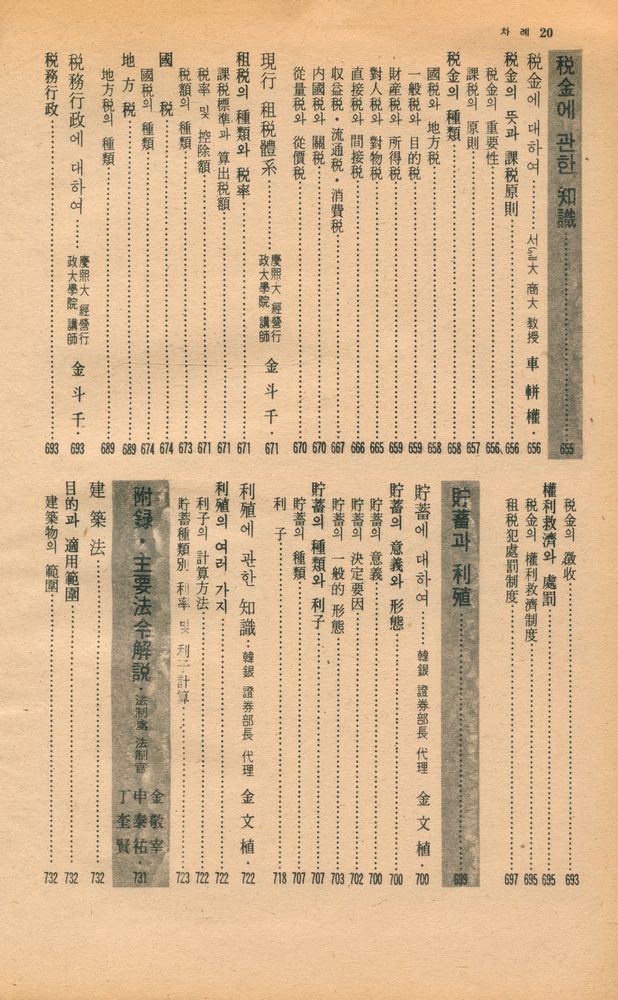 차 례 20
税金에 관한 知識 655
税金에 대하여 서울大 商大 教授 車軿權 656
税金의 뜻과 課税原則 656
税金의 重要性 656
課税의 原則 657
税金의 種類 658
國税와 地方税 658
一般税와 目的税 659
財産税와 所得税 659
對人税와 對物税 665
直接税와 間接税 666
収益税・流通税・消費税 667
内國税와 關税 670
從量税와 從價税 670
現行 租税體系 慶熙大 經營行政大學院 講師 金斗千 671
租税의 種類와 税率 671
課税標準과 算出税額 671
税率 및 控除額 671
税額의 種類 673
國税 674
國税의 種類 674
地方税 689
地方税의 種類 689
税務行政에 대하여 慶熙大 經營行政大學院 講師 金斗千 693
税務行政 693
税金의 徵收 693
權利救濟와 處罰 695
税金의 權利救濟制度 695
租税犯處罰制度 697
貯蓄과 利殖 699
貯蓄에 대하여 韓銀 證券部長 代理 金文植 700
貯蓄의 意義와 形態 700
貯蓄의 意義 700
貯蓄의 決定要因 702
貯蓄의 一般的 形態 703
貯蓄의 種類와 利子 707
貯蓄의 種類 707
利子 718
利殖에 관한 知識 韓銀 證券部長 代理 金文植 722
利殖의 여러 가지 722
利子의 計算方法 722
貯蓄種類別 利率 및 利子計算 723
附録・主要法令解説 法制處 法制官 金敬宰 申泰祐 丁奎賢 731
建築法 732
目的과 適用範圍 732
建築物의 範圍 732